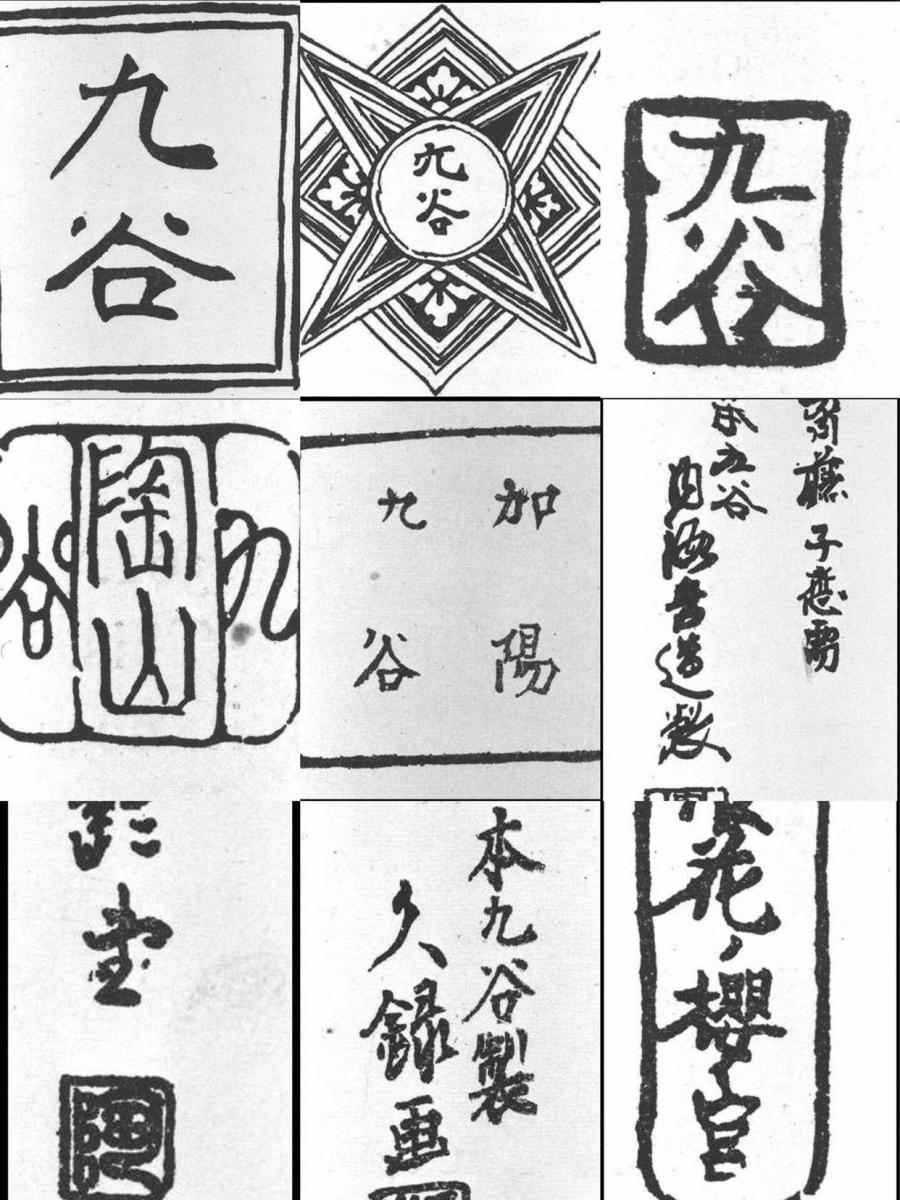 九谷
九谷
九谷
九谷
陶山
加陽
九谷
齋藤
九谷
造製
堂
陶
本九谷製
久録画
花ノ櫻宮